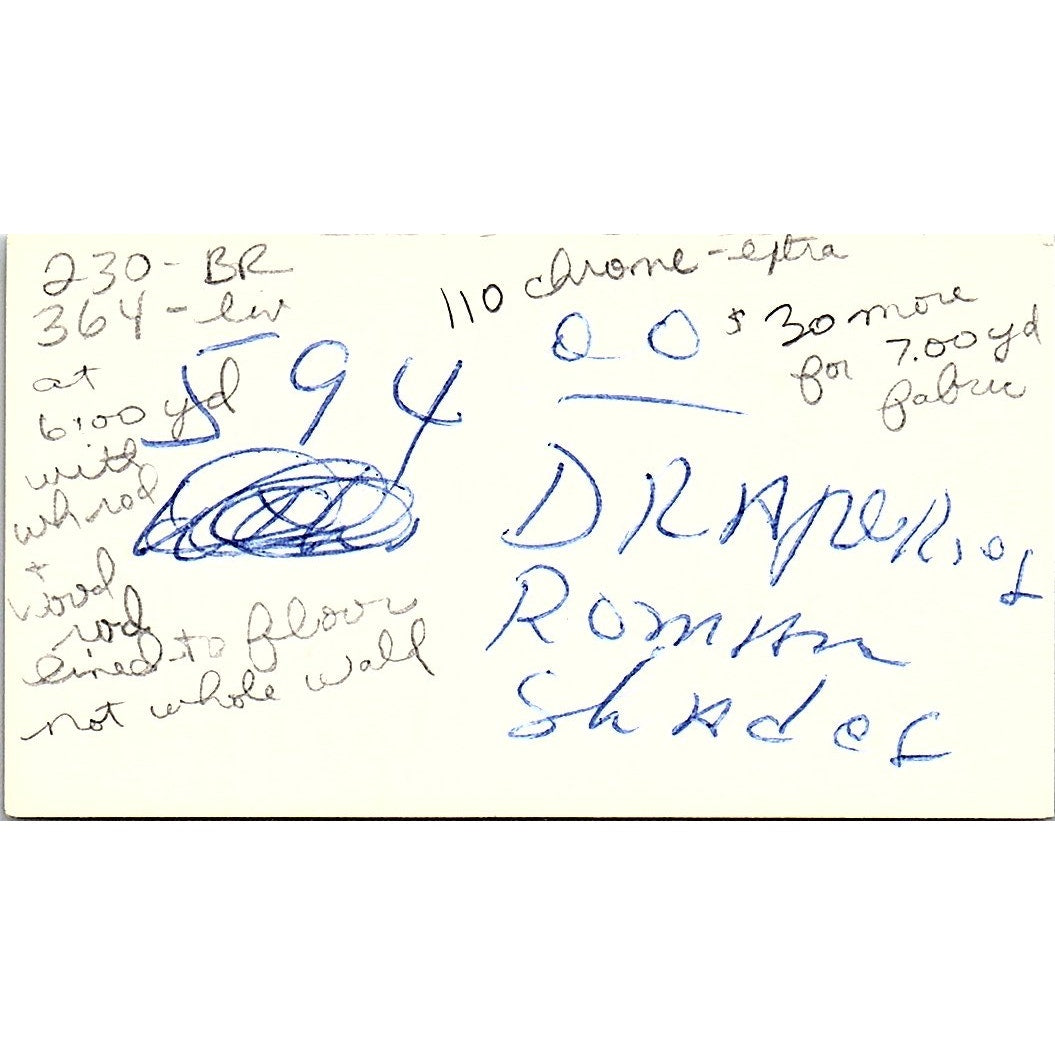 230 - BR
364 - liv
at
6.00 yd
with
wh rod
+
wood
rod
lined - to floor
not whole wall
594 00
110 chrome - extra
$30 more
for 7.00 yd
fabric
DRAPERies
Roman
Shades